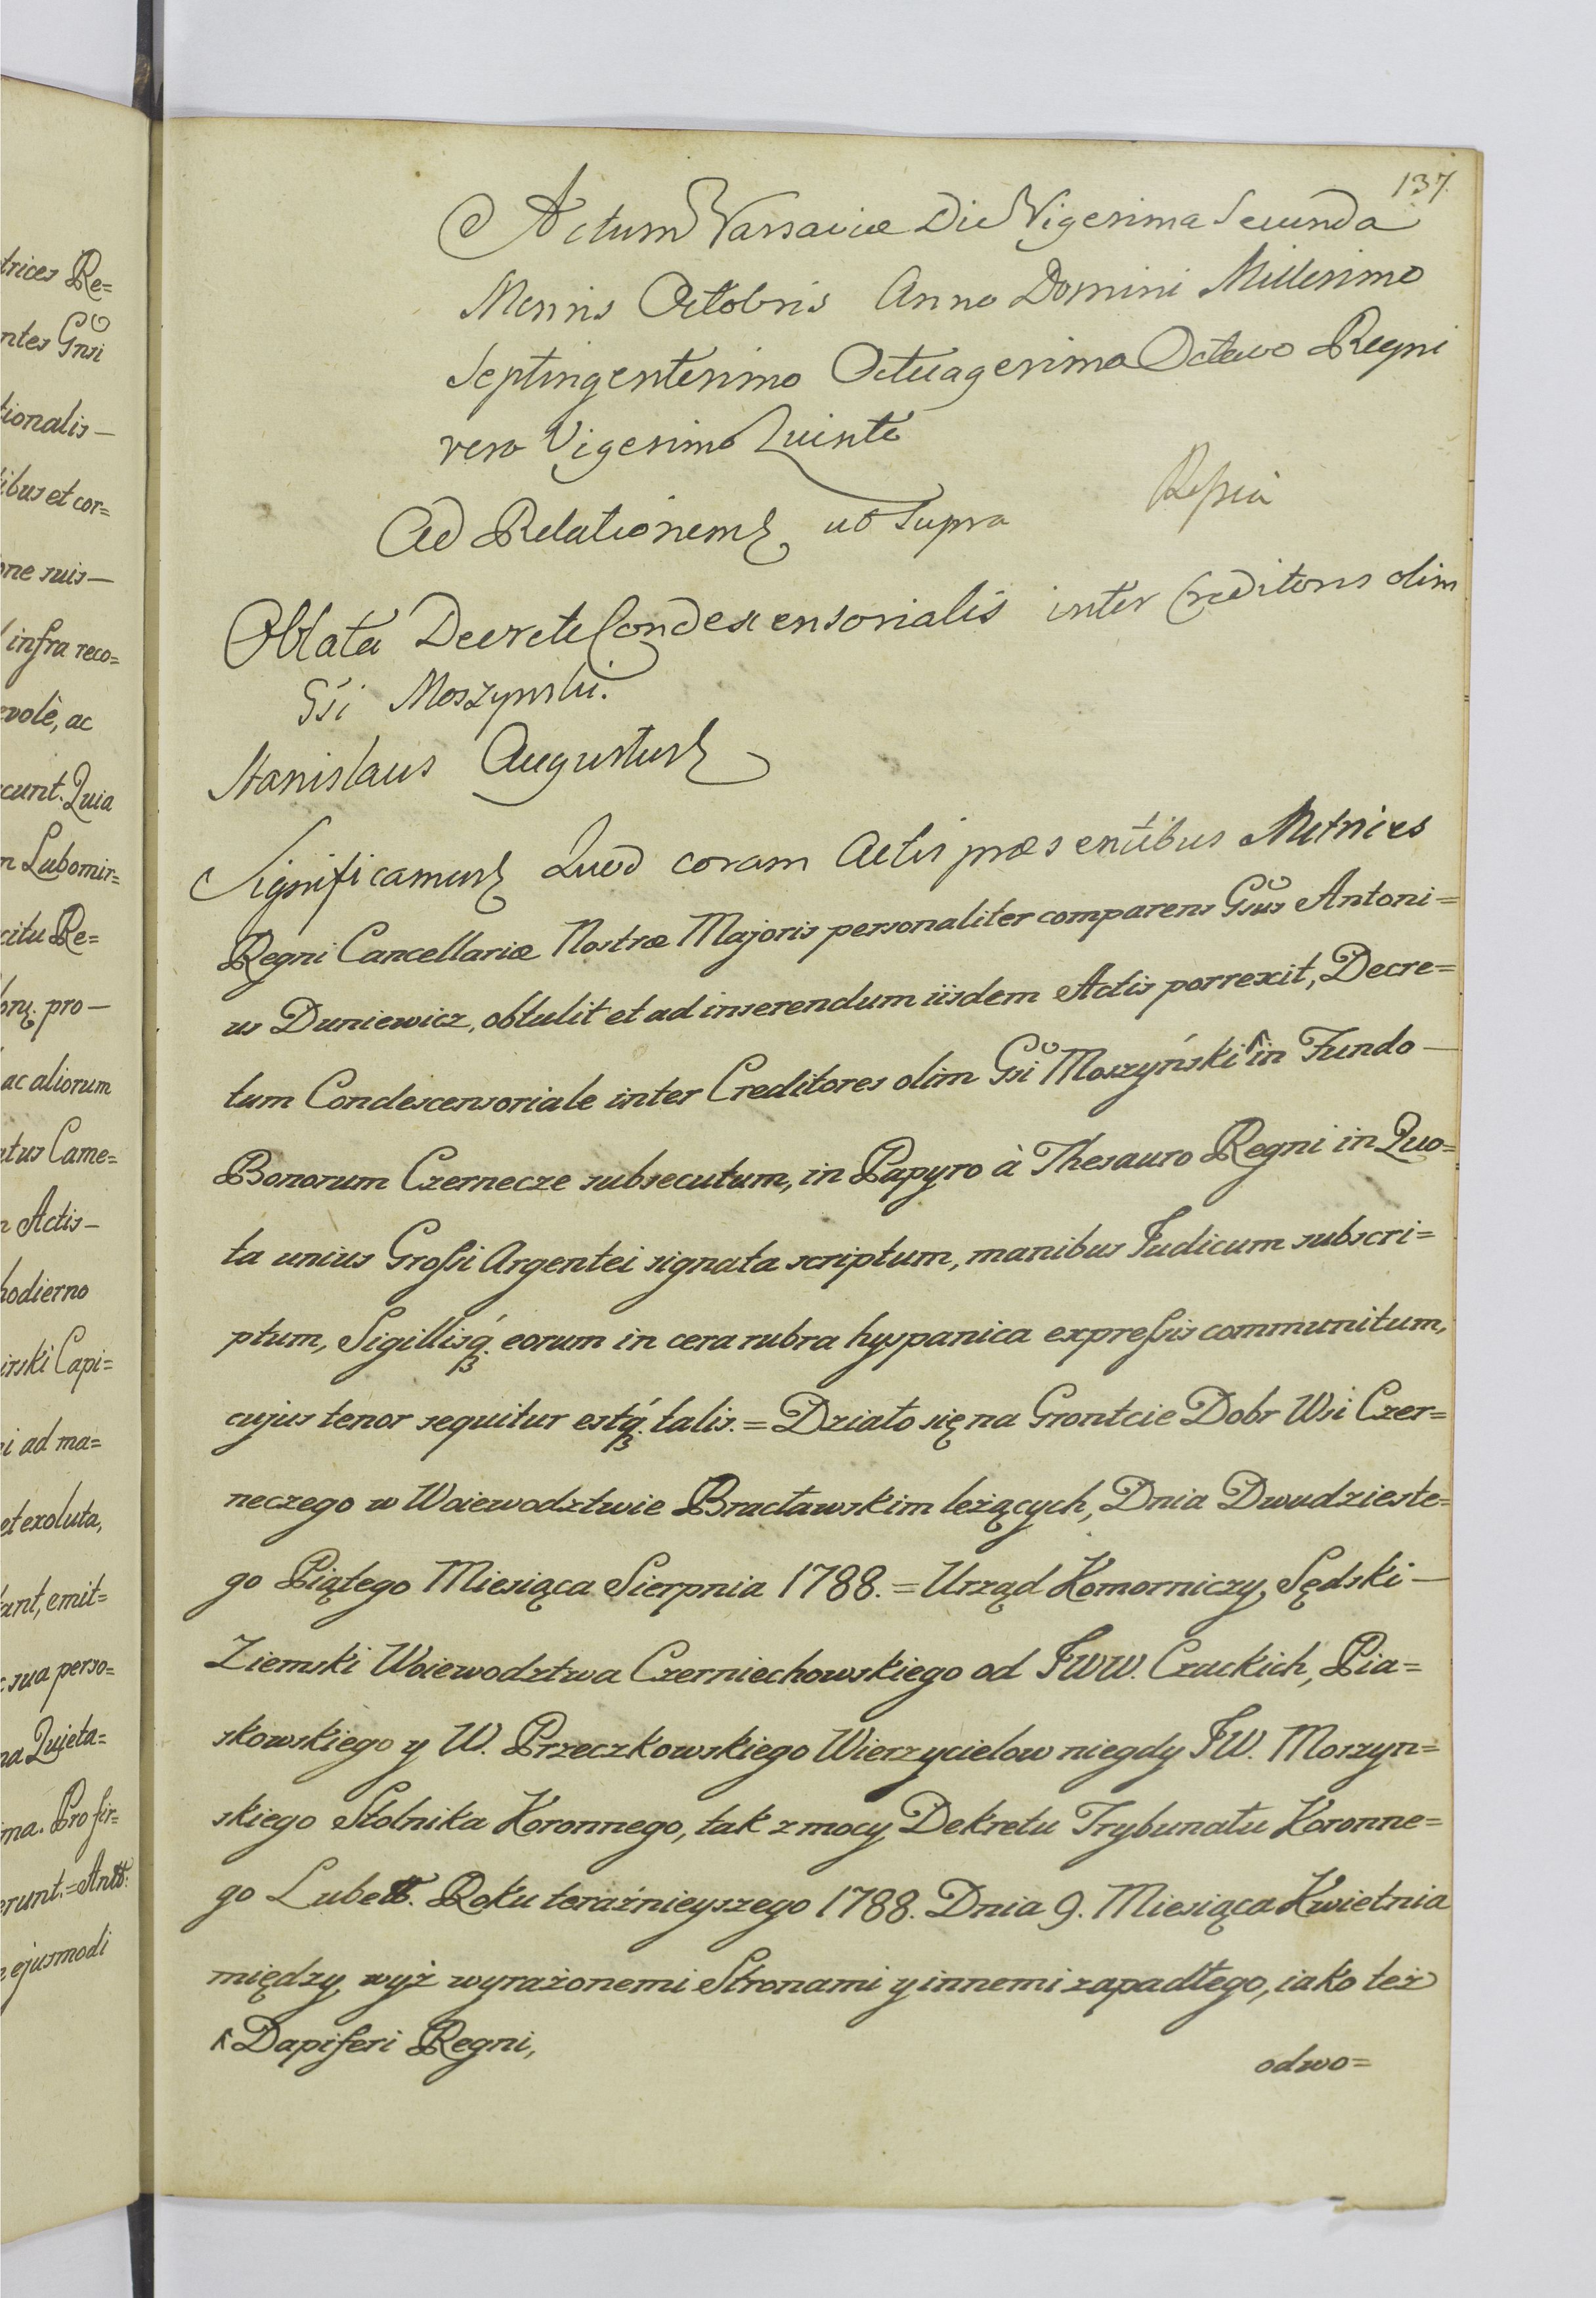 trices Re=
ntes Gnsi
tionalis —
ibus et cor=
one suis —
infra reco=
evolè, ac
cunt. Quia
m Lubomir=
citu Re=
pro —
ac aliorum
atus Came=
Actis —
hodierno
irski Capi=
i ad ma=
et exoluta,
ant, emit=
sua perso=
na Quieta=
ma. Pro fir=
erunt. = Antt:
ejusmodi
137.
Actum Varsaviæ Die Vigesima Secunda
Mensis Octobris Anno Domini Millesimo
Septingentesimo Octuagesimo Octavo Regni
vero Vigesimo Quinto
Ad Relationem ut Supra
Oblata Decreti Condescensorialis inter Creditores olim
Gsi Moszynski.
Stanislaus Augustus
Significamus Quod coram Actis præsentibus Metrices
Regni Cancellariæ Nostræ Majoris personaliter comparens Gsus Antoni=
us Duniewicz, obtulit et ad inserendum iisdem Actis porrexit, Decre=
tum Condescensoriale inter Creditores olim Gsi Moszyński ^ in Fundo —
Bonorum Czernecze subsecutum, in Papyro à Thesauro Regni in Quo=
ta unius Grossi Argentei signata scriptum, manibus Judicum subscri=
ptum, Sigillisq. eorum in cera rubra hyspanica expressis communitum,
cujus tenor sequitur estq. talis. = Działo się na Grontcie Dobr Wsi Czer=
neczego w Woiewodztwie Bracławskim leżących, Dnia Dwudzieste=
go Piątego Miesiąca Sierpnia 1788. = Urząd Komorniczy, Sędski —
Ziemski Woiewodztwa Czerniechowskiego od JWW. Czackich, Pia=
skowskiego y W. Przeczkowskiego Wierzycielow niegdy JW. Moszyn=
skiego Stolnika Koronnego, tak z mocy Dekretu Trybunatu Koronne=
go Lubett. Roku teraźnieyszego 1788. Dnia 9. Miesiąca Kwietnia
między wyż wyrażonemi Stronami y innemi zapadłego, iako też
^ Dapiferi Regni,
odwo=